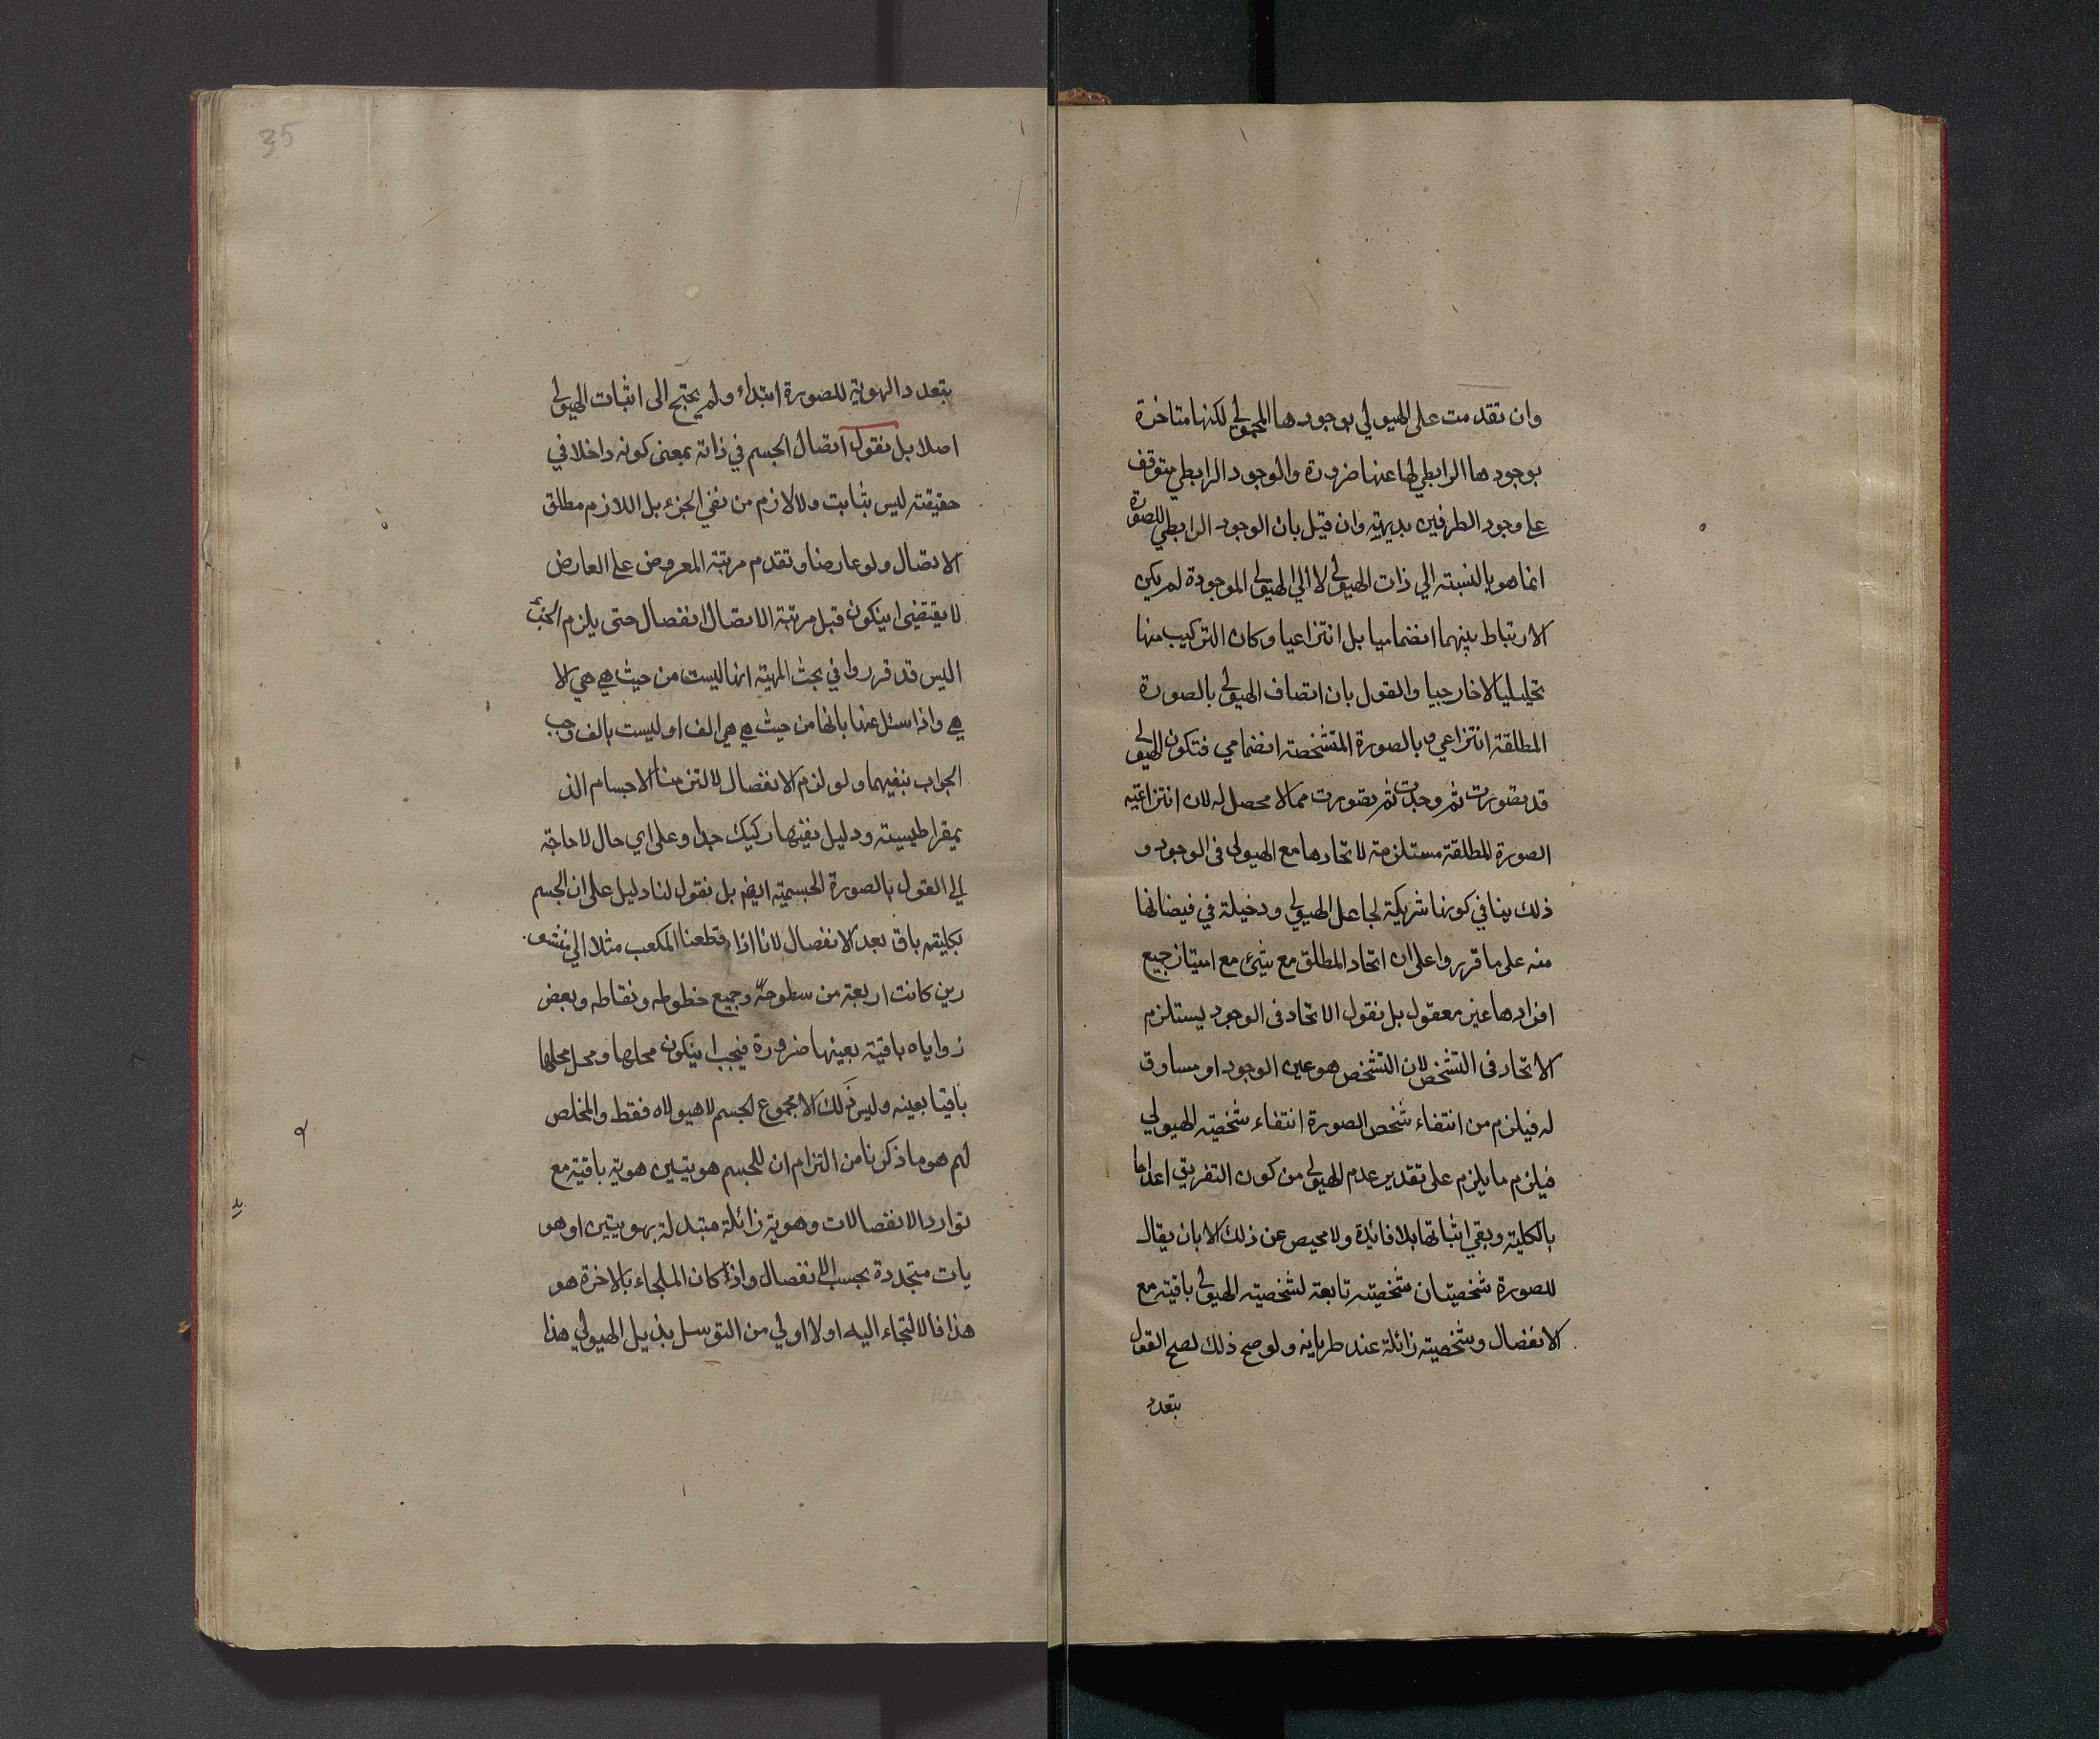 وان تقدمت على الهيولي بوجودها المحمولي لكنها متاخرة
بوجودها الرابطي لها عنها ضرورة والوجود الرابطي متوقف
على وجود الطرفين بديهية وان قيل بان الوجود الرابطي للصورة
انما هو بالنسبة الي ذات الهيولي لا الي الهيولي الموجودة لم يكن
الارتباط بينهما انضماميا بل انتزاعيا وكان التركيب منها
تحليليا لاخارجيا والقول بان اتصاف الهيولي بالصورة
المطلقة انتزاعي وبالصورة المتشخصة انضمامي فتكون الهيولي
قد تصورت ثم وجدت ثم تصورت مما لا محصل له لان انتزاعية
الصورة المطلقة مستلزمة لاتحادها مع الهيولى في الوجود و
ذلك ينافي كونها شريكة لجاعل الهيولي ودخيلة في فيضانها
منه على ما قرروا على ان اتحاد المطلق مع شيء مع امتياز جميع
افرادها غير معقول بل نقول الاتحاد في الوجود يستلزم
الاتحاد في التشخص لان التشخص هو عين الوجود او مساوق
له فيلزم من انتفاء شخص الصورة انتفاء شخصية الهيولي
فيلزم ما يلزم على تقدير عدم الهيولي من كون التفريق اعداما
بالكلية وبقي اثباتها بلا فائدة ولا محيص عن ذلك الا بان يقال
للصورة شخصيتان شخصية تابعة لشخصية الهيولي باقية مع
الانفصال وشخصية زائلة عند طريانه ولو صح ذلك لصح القول
بتعدد
35
بتعدد الهوية للصورة ابتداء ولم يحتج الى اثبات الهيولي
اصلا بل نقول اتصال الجسم في ذاته بمعنى كونه داخلا في
حقيقته ليس بثابت ولا لازم من نفي الجزء بل اللازم مطلق
الاتصال ولو عارضا وتقدم مرتبة المعروض على العارض
لا يقتضي ان يكون قبل مرتبة الاتصال انفصال حتى يلزم الجزء
اليس قد قرروا في بحث المهية انها ليست من حيث هي هي الا
هي واذا سئل عنها بانها من حيث هي هي الف او ليست بالف وجب
الجواب بنفيهما ولو لزم الانفصال لالتزمنا الاجسام الذ
يمقراطيسية ودليل نفيها ركيك جدا وعلى اي حال لا حاجة
الي القول بالصورة الجسمية ايضا بل نقول لنا دليل على ان الجسم
بكليته باق بعد الانفصال لانا اذا قطعنا المكعب مثلا الي منشو
رين كانت اربعة من سطوحه وجميع خطوطه ونقاطه وبعض
زواياه باقية بعينها ضرورة فيجب ان يكون محلها ومحل محلها
باقيا بعينه وليس ذلك الا مجموع الجسم لا هيولاه فقط والمخلص
لهم هو ما ذكرنا من التزام ان للجسم هويتين هوية باقية مع
توارد الانفصالات وهوية زائلة متبدلة بهويتين او هو
يات متجددة بحسب الانفصال واذا كان الملجاء بالاخرة هو
هذا فالالتجاء اليه اولا اولي من التوسل بذيل الهيولي هذا